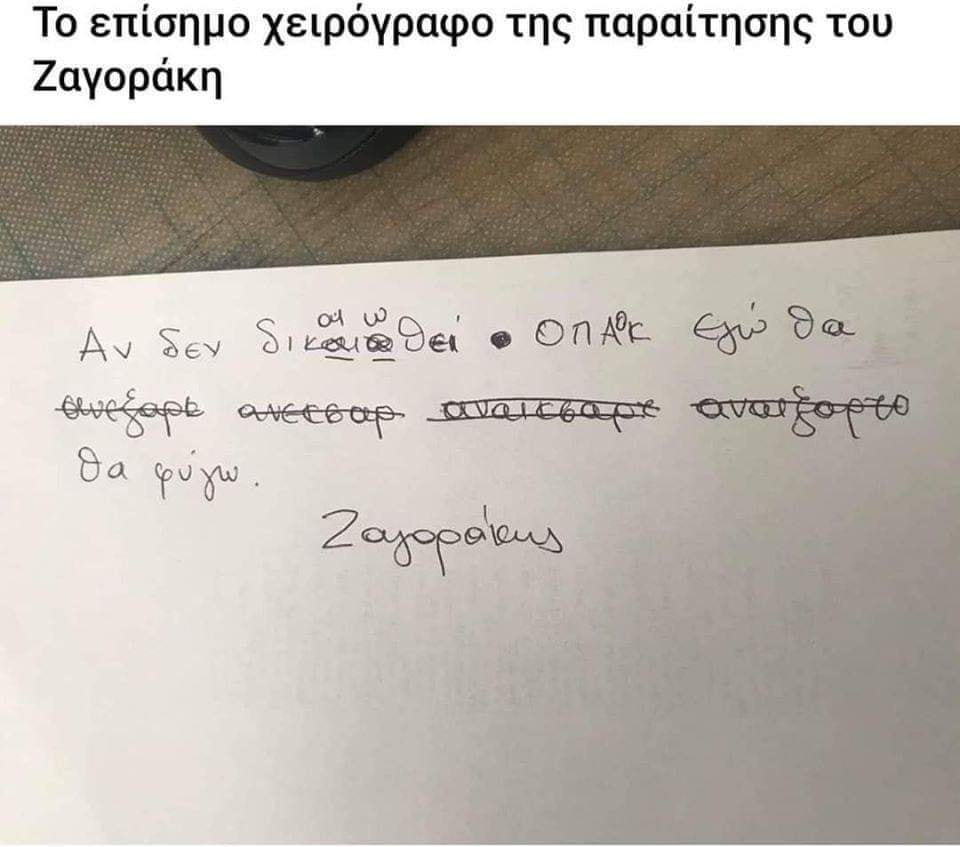 Το επίσημο χειρόγραφο της παραίτησης του
Ζαγοράκη
Αν δεν δικαιωθεί • ΟΠΑΟΚ εγώ θα
ανεξαρτ ανετσαρ αναιτσαρτ αναιξαρτο
θα φύγω.
Ζαγοράκης